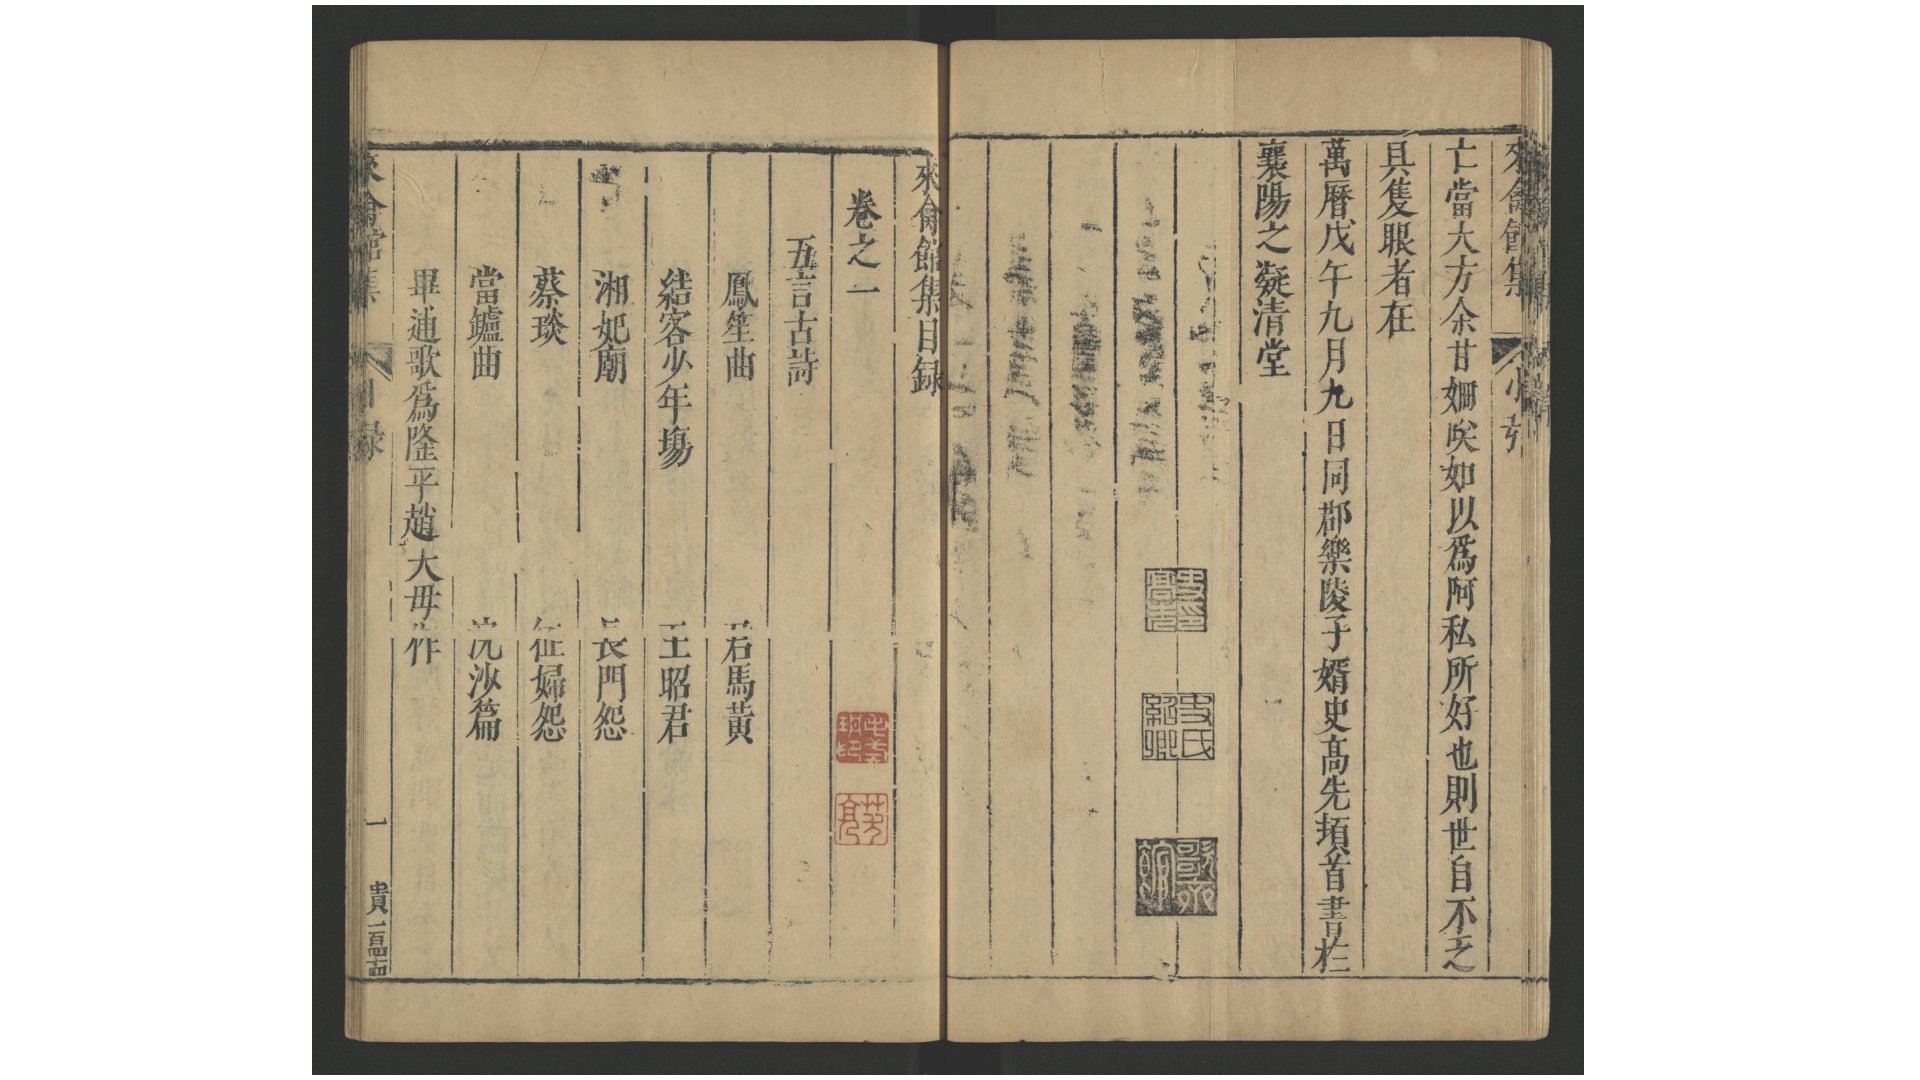 來禽館集 小引
亡當大方余甘如唉如以爲阿私所好也則世自不乏
具隻眼者在
萬曆戊午九月九日同郡樂陵子婿史高先頓首書於
襄陽之凝清堂
史氏紹卿
來禽館集目録
卷之一
五言古詩
鳳笙曲 君馬黃
結客少年場 王昭君
湘妃廟 長門怨
蔡琰 征婦怨
當鑪曲 沉沙篇
畢逋歌爲隆平趙大毋作
來禽館集 目録 一 貴一百四十四